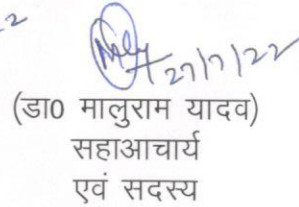 27/7/22
(डा0 मालुराम यादव)
सहाआचार्य
एवं सदस्य